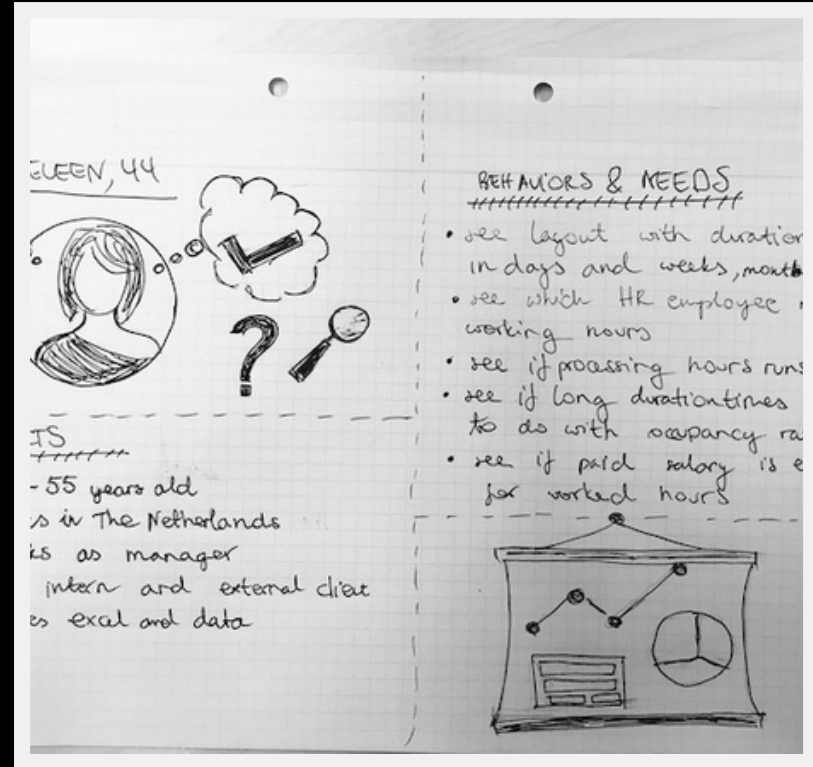 ELEEN, 44
TS
- 55 years old
s in The Netherlands
ks as manager
intern and external client
es excel and data
BEHAVIORS & NEEDS
• see layout with duration
in days and weeks, month
• see which HR employee
working hours
• see if processing hours runs
• see if long durationtimes
to do with occupancy ra
• see if paid salary is e
for worked hours